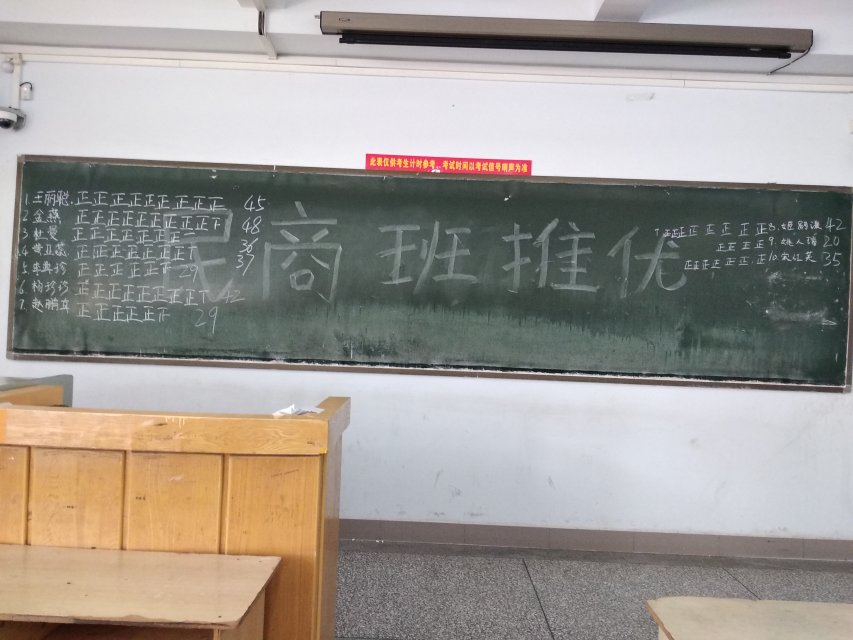 此表仅供考生计时参考，考试时间以考试信号哨声为准
民商班推优
1.王丽聪 正正正正正正正正正 45
2 金燕 正正正正正正正正正下 48
3 杜曼 正正正正正正正一 36
4 黄亚蕊 正正正正正正正丅 37
5 李典珍 正正正正正正 29
6 杨珍珍 正正正正正正正正丅 42
7. 赵鹏立 正正正正正 29
正正正正正正正正 8. 42
正正正正 9. 姚人瑞 20
正正正正正正正 10. 宋红英 35